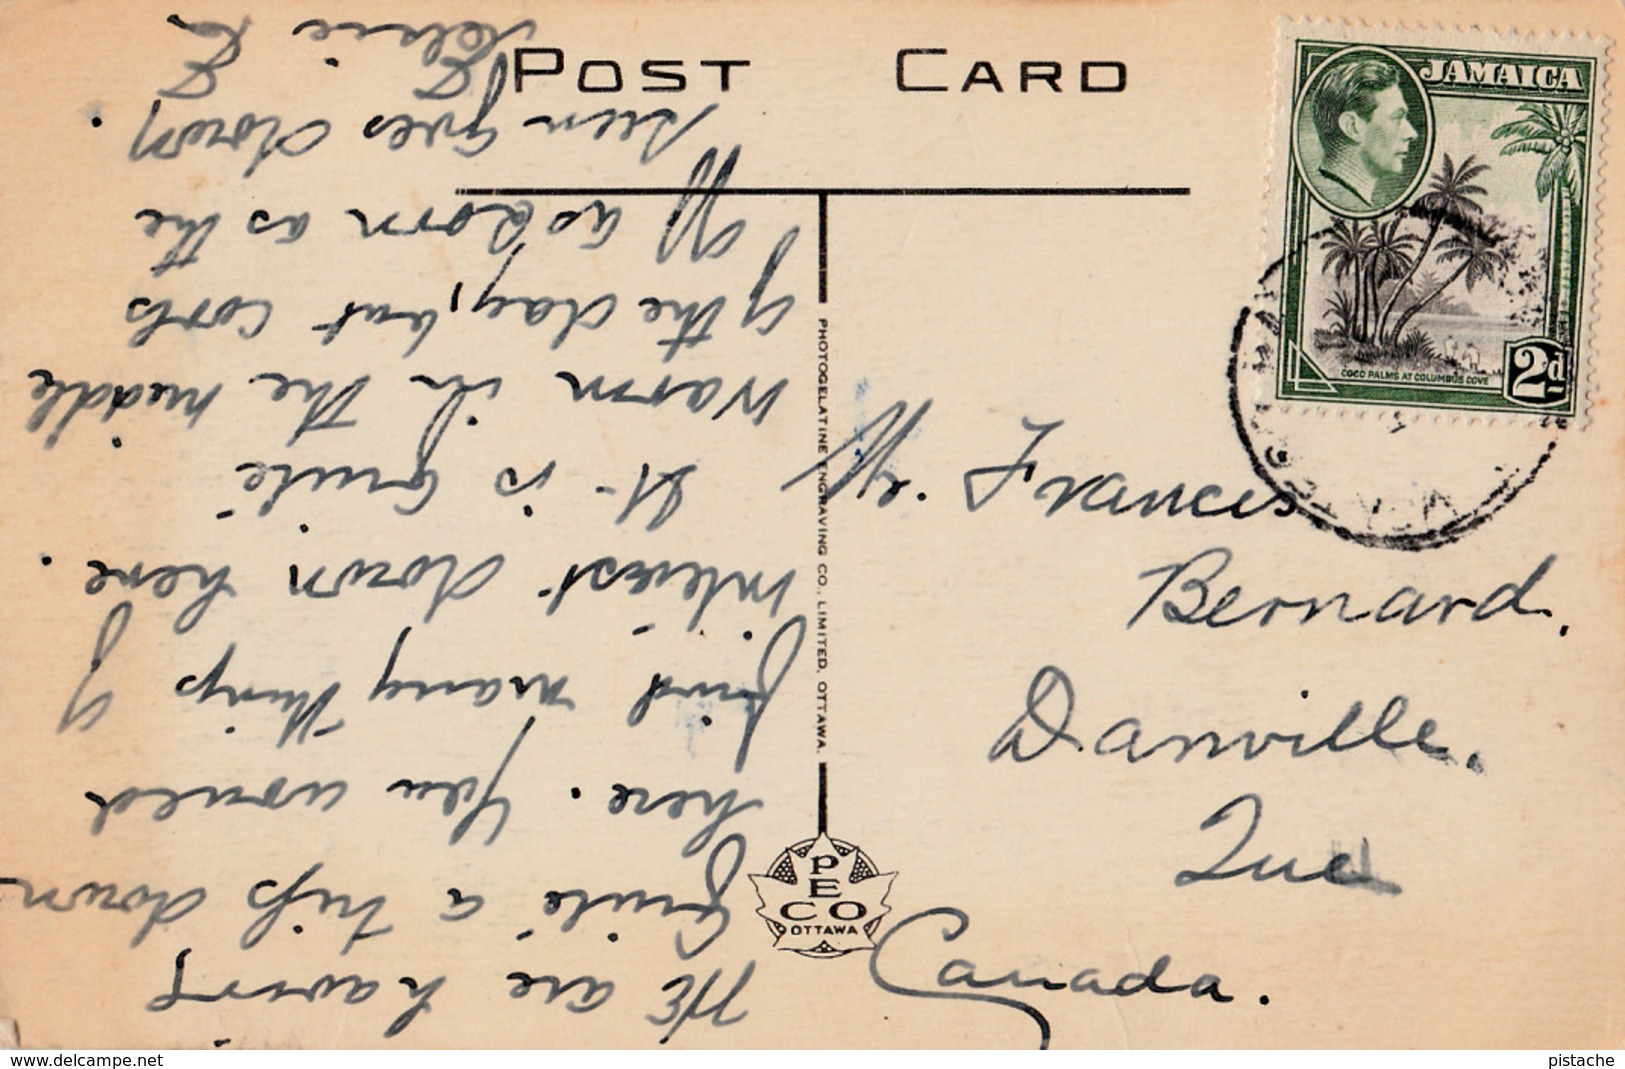 POST CARD
JAMAICA
COCO PALMS AT COLUMBUS COVE
2d
We are having
quite a trip down
here. You would
find many things of
interest down here.
It is quite
warm in the middle
of the day, but cools
off as soon as the
sun goes down.
Elsie
Francis
Bernard.
Danville.
Que
Canada.
PHOTOGELATINE ENGRAVING CO., LIMITED, OTTAWA.
PECO
OTTAWA
www.delcampe.net
pistache